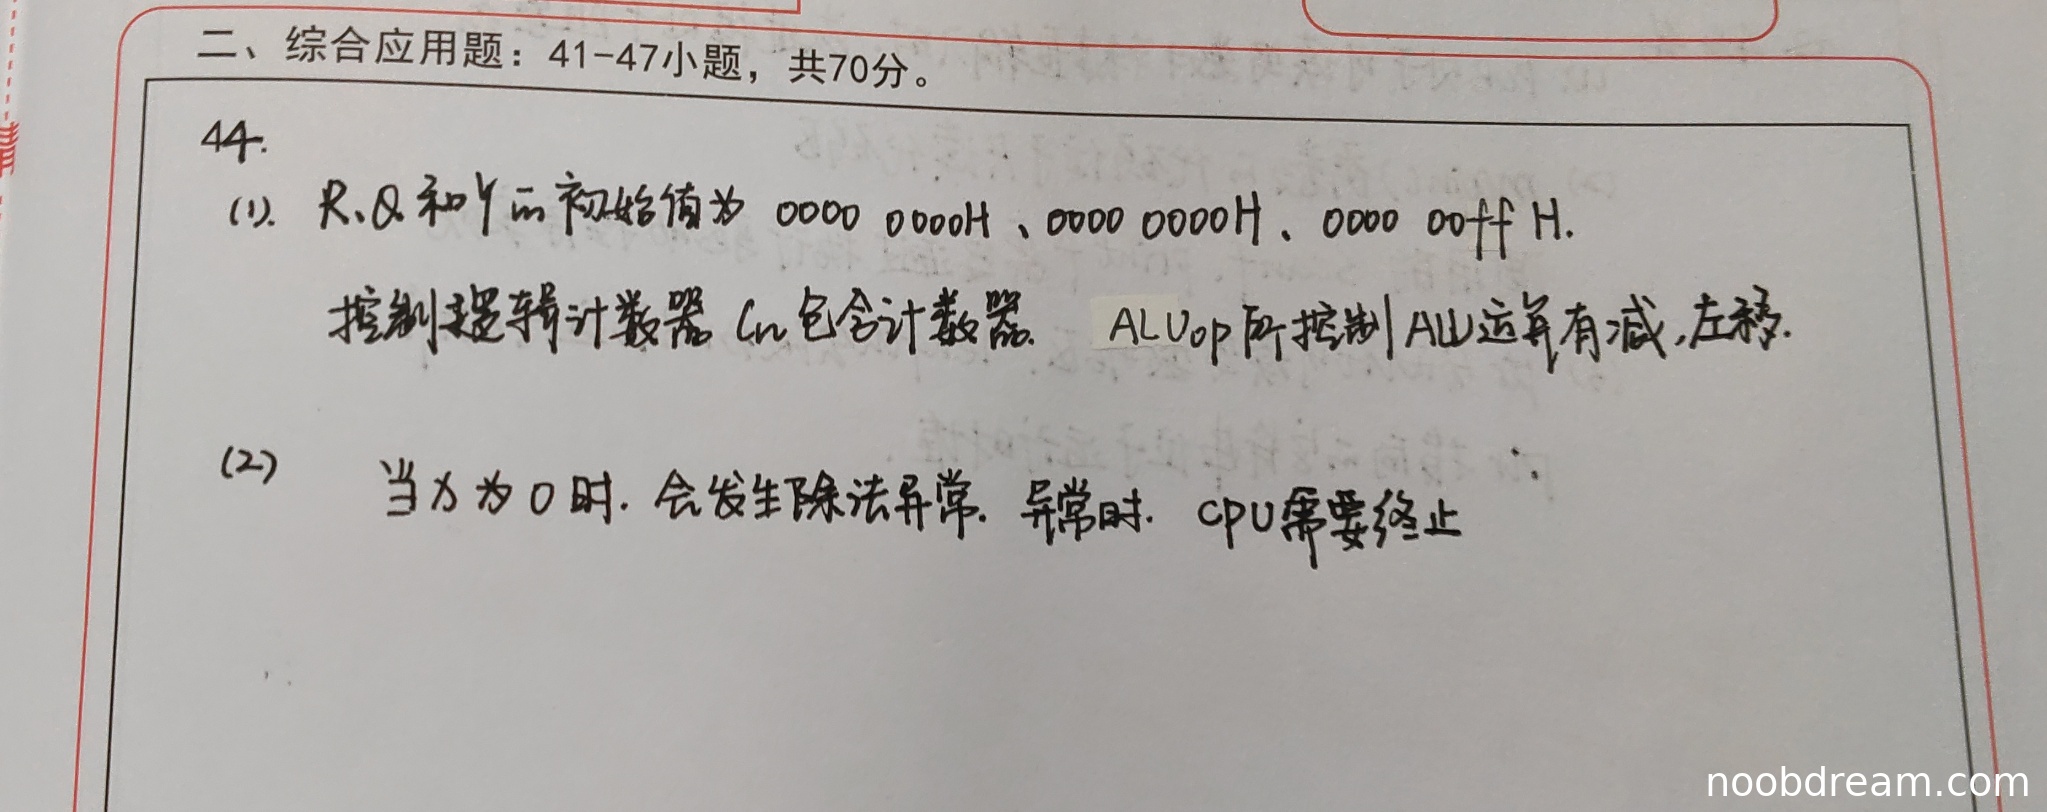 二、综合应用题：41-47小题，共70分。
44.
(1). R、Q和Y的初始值为 0000 0000H、0000 0000H、0000 00ff H.
控制逻辑计数器 Cn包含计数器. ALUop所控制ALU运算有减,左移.
(2) 当X为0时. 会发生除法异常. 异常时. CPU需要终止
noobdream.com